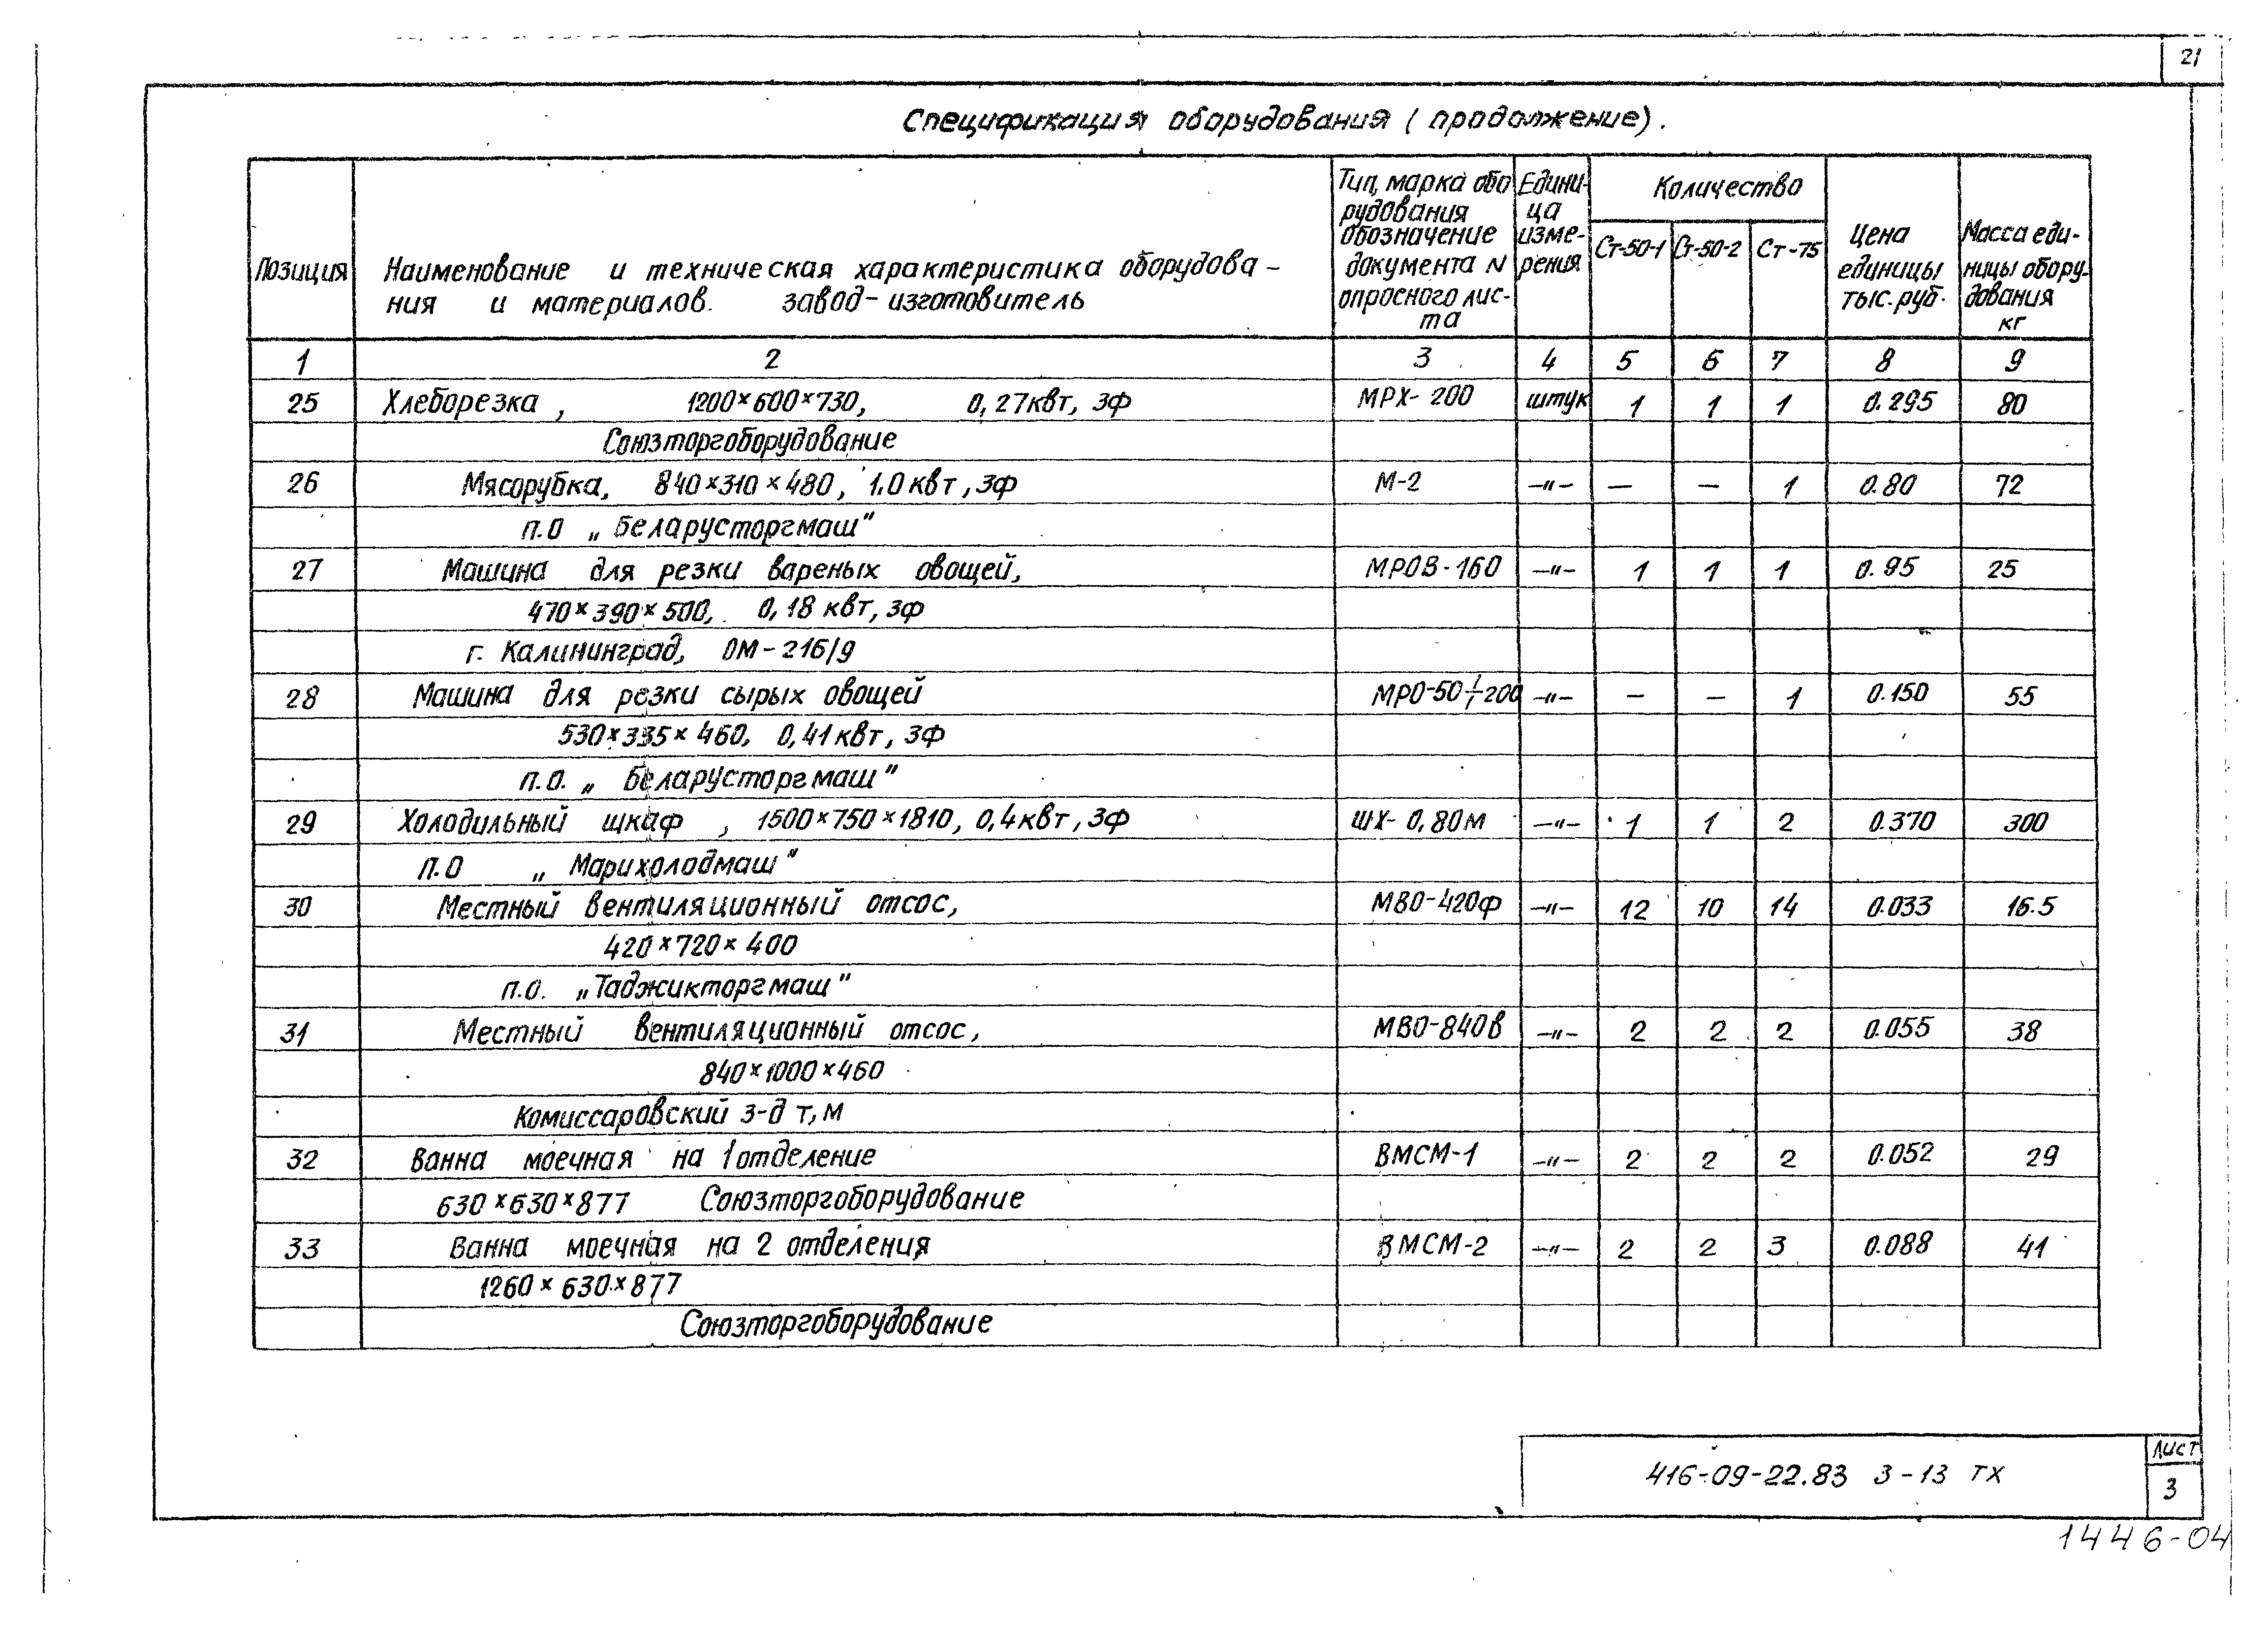 21
Спецификация оборудования (продолжение).
Позиция
Наименование и техническая характеристика оборудова-
ния и материалов. завод-изготовитель
Тип, марка обо
рудования
обозначение
документа N
опросного лис-
та
Едини-
ца
изме-
рения
Количество
Ст-50-1 Ст-50-2 Ст-75
Цена
единицы
тыс. руб.
Масса еди-
ницы обору-
дования
кг
1 2 3 4 5 6 7 8 9
25 Хлеборезка, 1200×600×730, 0,27квт, 3ф МРХ-200 штук 1 1 1 0.295 80
Союзторгоборудование
26 Мясорубка, 840×310×480, 1.0квт, 3ф М-2 —"— — — 1 0.80 72
п.о „Беларусторгмаш"
27 Машина для резки вареных овощей, МРОВ-160 —"— 1 1 1 0.95 25
470×390×500, 0,18 квт, 3ф
г. Калининград, ОМ-216/9
28 Машина для резки сырых овощей МРО-50 1/1 200 —"— — — 1 0.150 55
530×335×460, 0,41квт, 3ф
п.о. „Беларусторгмаш"
29 Холодильный шкаф, 1500×750×1810, 0,4квт, 3ф ШХ-0,80м —"— 1 1 2 0.370 300
п.о „Марихолодмаш"
30 Местный вентиляционный отсос, МВО-420ф —"— 12 10 14 0.033 16.5
420×720×400
п.о. „Таджикторгмаш"
31 Местный вентиляционный отсос, МВО-840в —"— 2 2 2 0.055 38
840×1000×460
Комиссаровский з-д т,м
32 Ванна моечная на 1 отделение ВМСМ-1 —"— 2 2 2 0.052 29
630×630×877 Союзторгоборудование
33 Ванна моечная на 2 отделения ВМСМ-2 —"— 2 2 3 0.088 41
1260×630×877
Союзторгоборудование
416-09-22.83 3-13 ТХ
Лист
3
1446-04